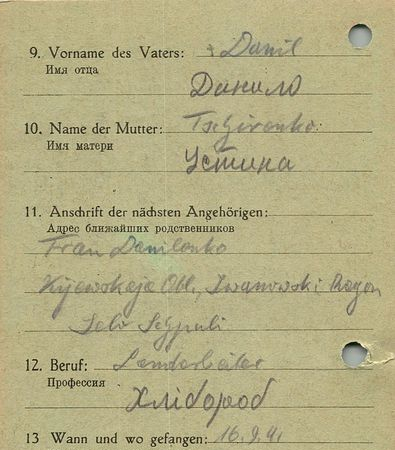 9. Vorname des Vaters: Danil
Имя отца
Данило
10. Name der Mutter: Tschironko
Имя матери
Устина
11. Anschrift der nächsten Angehörigen:
Адрес ближайших родственников
Frau Danilonko
Kijewskaja Obl., Iwanowski Rayon
Selo
12. Beruf: Landarbeiter
Профессия
Хлібороб
13 Wann und wo gefangen: 16.9.41